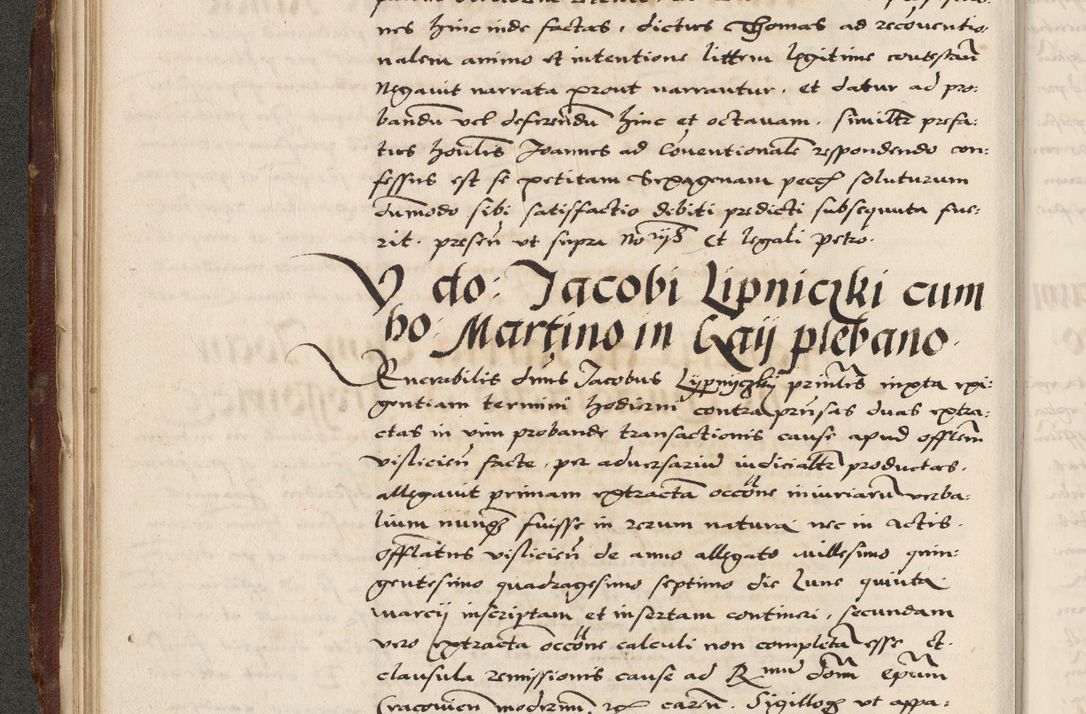 nes hinc inde factas, dictus Thomas ad recoventio
nalem animo et intentione littem legitime contestan
Negavit narrata prout narrantur. et datur ad pro:
bandu vel deferendu hinc et octavam. similiter prefa:
tus Joannes ad Coventionale respondendo con:
fessus est se petitam Sexagenam soluturum
dumodo sibi satisfactio debiti predicti subsequuta fue:
rit. presen ut supra No et legali Petro.
V do: Jacobi Lipniczki cum
ho: Martino in Kzÿ plebano.
Venerabilis dnus Jacobus Lypnyczky prinlis iuxta exi:
gentiam termini hodierni contra prnsas duas extra:
ctas in vim probande transactionis cause apud offlem
vislicien facte, per adversariu iudicialiter productas.
allegavit primam extracta occone iniuriaru verba:
lium nunq fuisse in rerum natura nec in actis
offlatus vislicien de anno allegato millesimo quin:
gentesimo quadragesimo septimo die Lune quinta
marcij inscriptam et insertam contineri, secundam
vero extracta occone calculi non completa esse et
clausula remissionis cause ad Rmum dom epum
Cracovien modernum Sigillo ut appa: